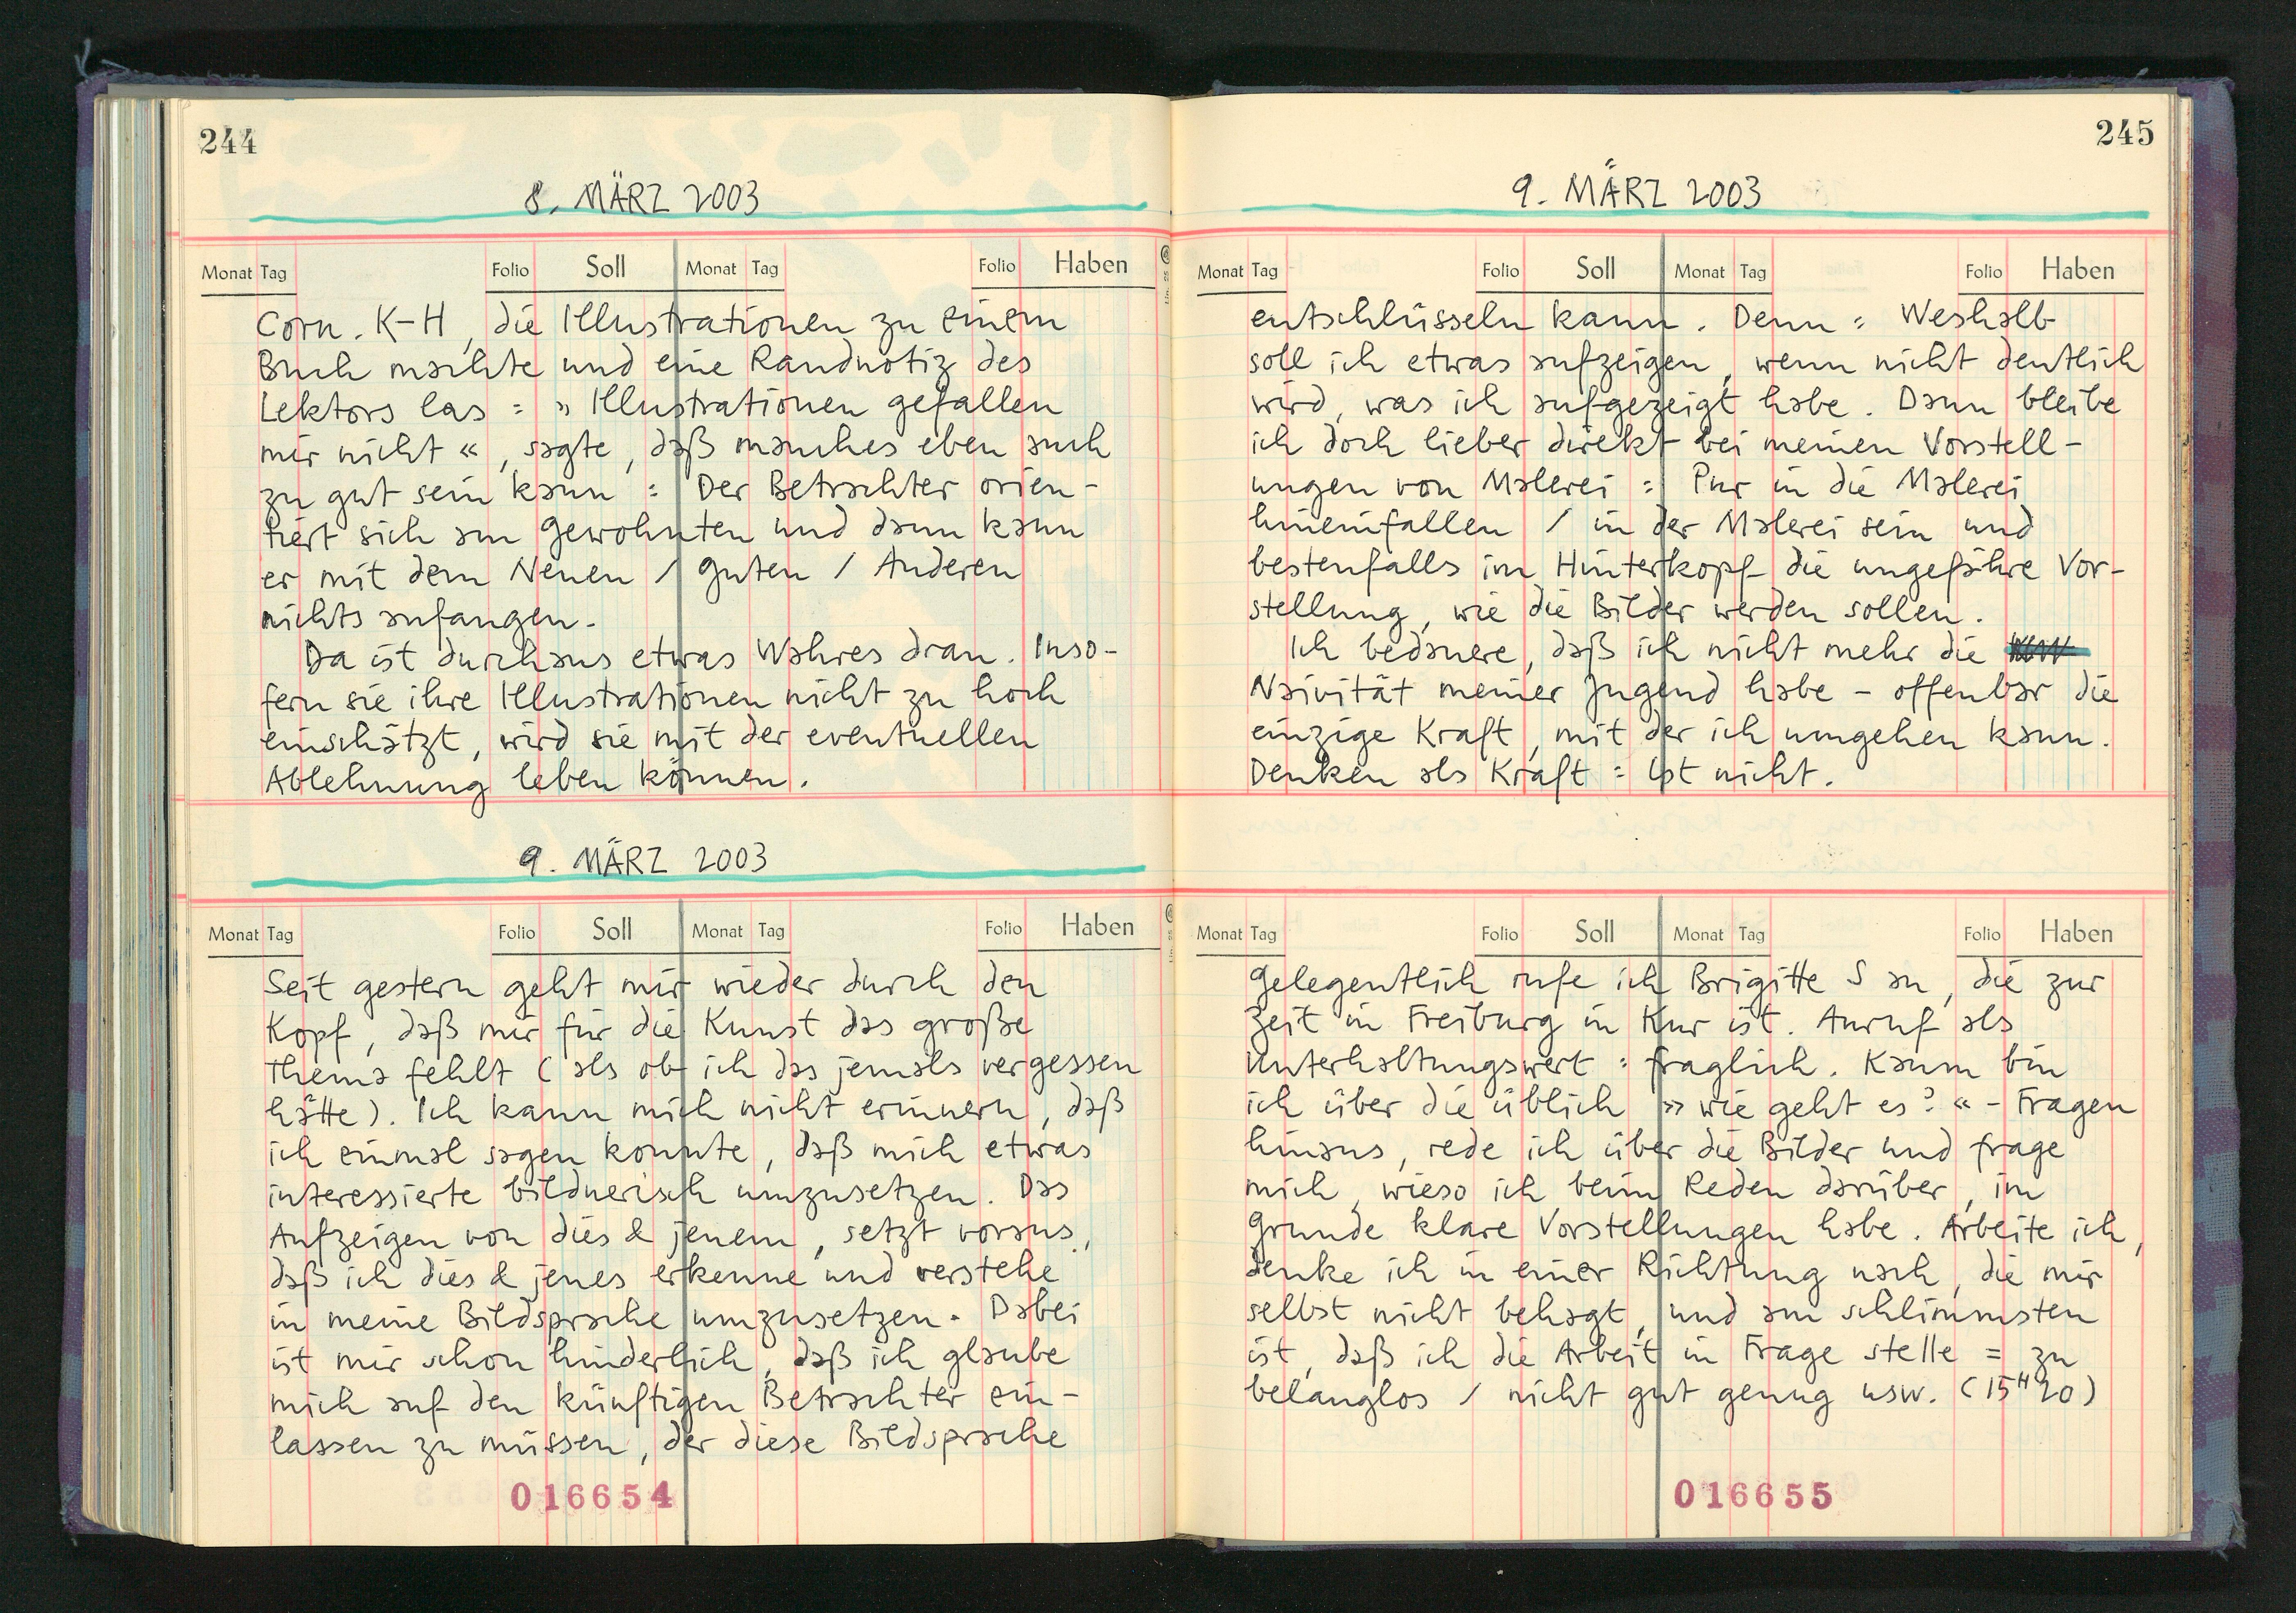 244
8. MÄRZ 2003
Monat Tag Folio Soll Monat Tag Folio Haben
Corn. K-H, die Illustrationen zu einem
Buch machte und eine Randnotiz des
Lektors las : » Illustrationen gefallen
mir nicht «, sagte, daß manches eben auch
zu gut sein kann : Der Betrachter orien-
tiert sich am gewohnten und dann kann
er mit dem Neuen / guten / Anderen
nichts anfangen.
Da ist durchaus etwas Wahres dran. Inso-
fern sie ihre Illustrationen nicht zu hoch
einschätzt, wird sie mit der eventuellen
Ablehnung leben können.
9. MÄRZ 2003
Monat Tag Folio Soll Monat Tag Folio Haben
Seit gestern geht mir wieder durch den
Kopf, daß mir für die Kunst das große
Thema fehlt (als ob ich das jemals vergessen
hätte). Ich kann mich nicht erinnern, daß
ich einmal sagen konnte, daß mich etwas
interessierte bildnerisch umzusetzen. Das
Aufzeigen von dies & jenem, setzt voraus,
daß ich dies & jenes erkenne und verstehe
in meine Bildsprache umzusetzen. Dabei
ist mir schon hinderlich, daß ich glaube
mich auf den künftigen Betrachter ein-
lassen zu müssen, der diese Bildsprache
016654
245
9. MÄRZ 2003
Monat Tag Folio Soll Monat Tag Folio Haben
entschlüsseln kann. Denn : Weshalb
soll ich etwas aufzeigen, wenn nicht deutlich
wird, was ich aufgezeigt habe. Dann bleibe
ich doch lieber direkt bei meinen Vorstell-
ungen von Malerei : Pur in die Malerei
hineinfallen / in der Malerei sein und
bestenfalls im Hinterkopf die ungefähre Vor-
stellung, wie die Bilder werden sollen.
Ich bedauere, daß ich nicht mehr die
Naivität meiner Jugend habe – offenbar die
einzige Kraft, mit der ich umgehen kann.
Denken als Kraft : ist nicht.
Monat Tag Folio Soll Monat Tag Folio Haben
Gelegentlich rufe ich Brigitte S an, die zur
Zeit in Freiburg in Kur ist. Anruf als
Unterhaltungswert : fraglich. Kaum bin
ich über die üblich » wie geht es? « - Fragen
hinaus, rede ich über die Bilder und frage
mich, wieso ich beim Reden darüber, im
Grunde klare Vorstellungen habe. Arbeite ich,
denke ich in einer Richtung nach, die mir
selbst nicht behagt, und am schlimmsten
ist, daß ich die Arbeit in Frage stelle = zu
belanglos / nicht gut genug usw. (15H20)
016655